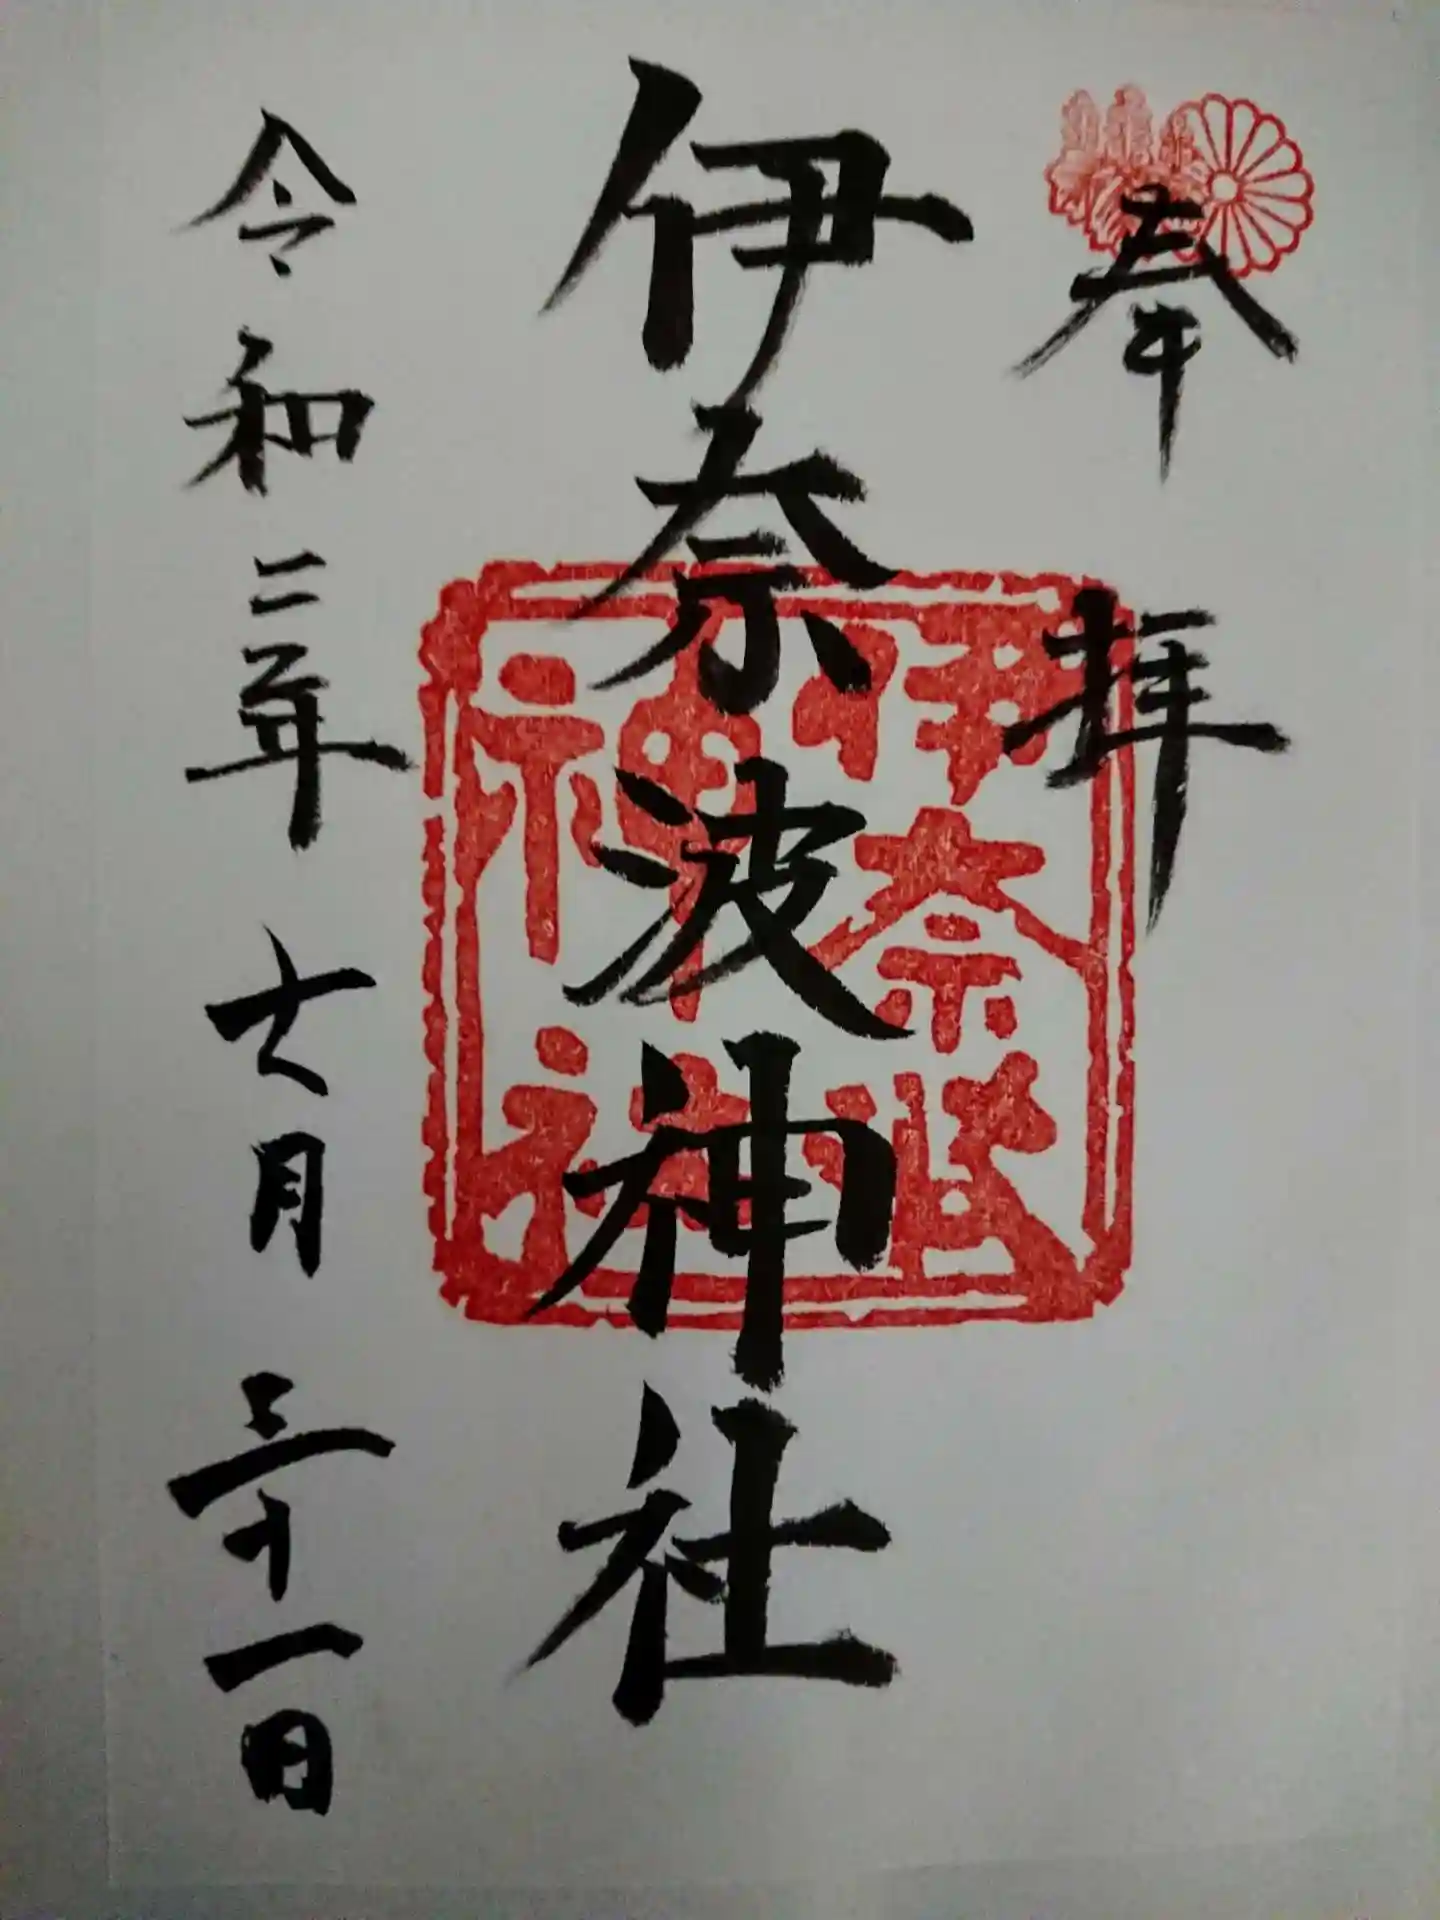 奉拝
伊奈波神社
伊奈波神社
令和二年七月三十一日